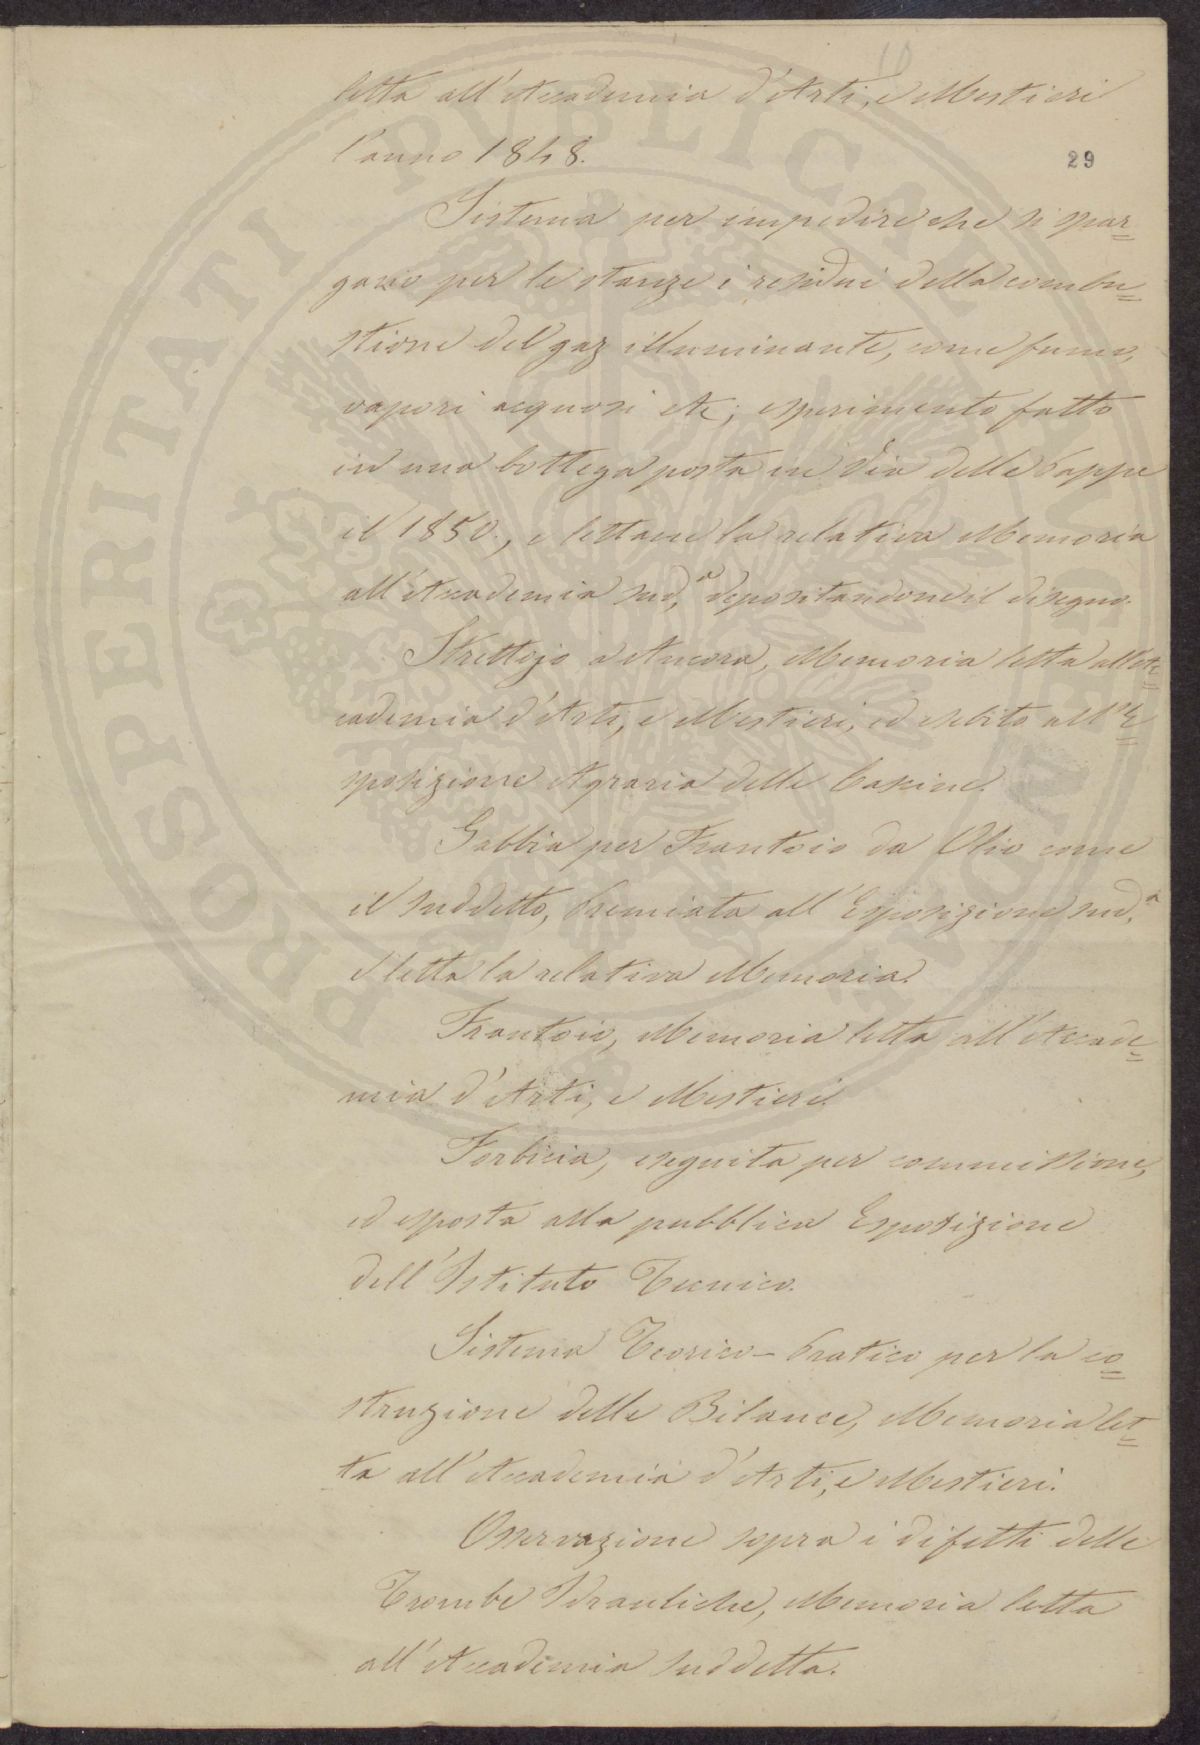 letta all'Accademia d'Arti, e Mestieri
l'anno 1848.
29
Sistema per impedire che si spar=
gano per le stanze i residui della combu=
stione del gaz illuminante, come fumo,
vapori acquosi etc; esperimento fatto
in una bottega posta in Via delle Cappe
il 1850., e lettane la relativa Memoria
all'Accademia sud.a, depositandone il disegno.
Strettojo a Ancora, Memoria letta all'Ac=
cademia d'Arti, e Mestieri, ed esebito all'E=
sposizione Agraria delle Cascine.
Gabbia per Frantoio da Olio come
il suddetto, premiata all'Esposizione sud.a,
e letta la relativa Memoria.
Frantoio, Memoria letta all'Accade=
mia d'Arti, e Mestieri.
Forbicia, eseguita per commissione,
ed esposta alla pubblica Esposizione
dell'Istituto Tecnico.
Sistema Teorico-Pratico per la co=
struzione delle Bilance, Memoria let=
ta all'Accademia d'Arti, e Mestieri.
Osservazione sopra i difetti delle
Trombe Idrauliche, Memoria letta
all'Accademia suddetta.
PROSPERITATI PUBLICAE AUGENDAE